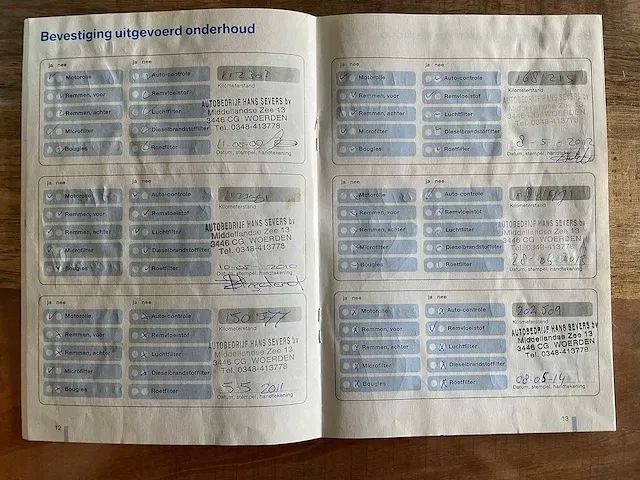 Bevestiging uitgevoerd onderhoud
ja nee ja nee
Motorolie Auto-controle 112307
Kilometerstand
Remmen, voor Remvloeistof
AUTOBEDRIJF HANS SEVERS bv
Remmen, achter Luchtfilter
Middellandse Zee 13
3446 CG WOERDEN
Microfilter Dieselbrandstoffilter
Tel. 0348-413778
Bougies Roetfilter
Datum, stempel, handtekening
ja nee ja nee
Motorolie Auto-controle
Kilometerstand
Remmen, voor Remvloeistof
AUTOBEDRIJF HANS SEVERS bv
Remmen, achter Luchtfilter
Middellandse Zee 13
3446 CG WOERDEN
Microfilter Dieselbrandstoffilter
Tel. 0348-413778
Bougies Roetfilter
10-05-2010
Datum, stempel, handtekening
ja nee ja nee
Motorolie Auto-controle 150.577
Kilometerstand
Remmen, voor Remvloeistof
AUTOBEDRIJF HANS SEVERS bv
Remmen, achter Luchtfilter
Middellandse Zee 13
3446 CG WOERDEN
Microfilter Dieselbrandstoffilter
Tel. 0348-413778
Bougies Roetfilter
5-5-2011
Datum, stempel, handtekening
12
ja nee ja nee
Motorolie Auto-controle 168.215
Kilometerstand
Remmen, voor Remvloeistof
AUTOBEDRIJF HANS SEVERS bv
Remmen, achter Luchtfilter
Middellandse Zee 13
3446 CG WOERDEN
Microfilter Dieselbrandstoffilter
Tel. 0348-413778
Bougies Roetfilter
8-5-2012
Datum, stempel, handtekening
ja nee ja nee
Motorolie Auto-controle
Kilometerstand
Remmen, voor Remvloeistof
AUTOBEDRIJF HANS SEVERS bv
Remmen, achter Luchtfilter
Middellandse Zee 13
3446 CG WOERDEN
Microfilter Dieselbrandstoffilter
Tel. 0348-413778
Bougies Roetfilter
Datum, stempel, handtekening
ja nee ja nee
Motorolie Auto-controle 202.509
Kilometerstand
Remmen, voor Remvloeistof
AUTOBEDRIJF HANS SEVERS bv
Remmen, achter Luchtfilter
Middellandse Zee 13
3446 CG WOERDEN
Microfilter Dieselbrandstoffilter
Tel. 0348-413778
Bougies Roetfilter
08-05-14
Datum, stempel, handtekening
13